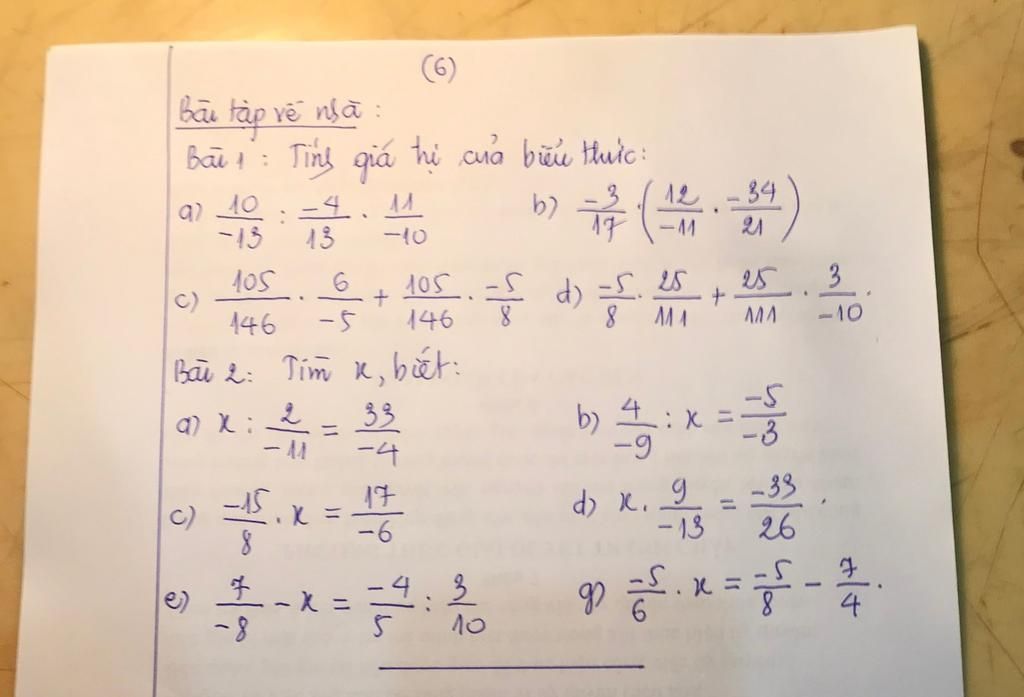 (6)
Bài tập về nhà :
Bài 1 : Tính giá trị của biểu thức:
a) 10/-13 : -4/13 . 11/-10 b) -3/17 . (12/-11 . -34/21)
c) 105/146 . 6/-5 + 105/146 . -5/8 d) -5/8 . 25/111 + 25/111 . 3/-10 .
Bài 2: Tìm x, biết:
a) x : 2/-11 = 33/-4 b) 4/-9 : x = -5/-3
c) -15/8 . x = 17/-6 d) x . 9/-13 = -33/26 .
e) 7/-8 - x = -4/5 : 3/10 g) -5/6 . x = -5/8 - 7/4 .